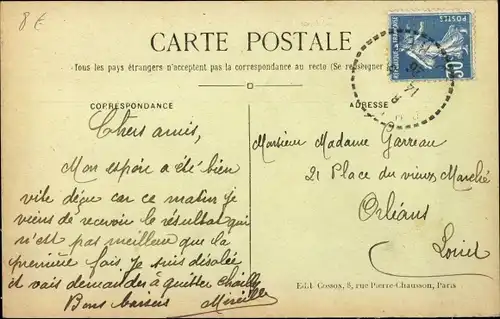 8 €
CARTE POSTALE
Tous les pays étrangers n'acceptent pas la correspondance au recto (Se renseigner
CORRESPONDANCE
ADRESSE
POSTES
Chers amis,
Mon espoir a été bien
vite déçu car ce matin je
viens de recevoir le résultat qui
n'est pas meilleur que la
première fois Je suis désolée
et vais demander à quitter Chailly
Bons baisers Mireille
Monsieur Madame Garreau
21 Place du vieux Marché
Orléans
Loiret
Edit Cossox, 8, rue Pierre-Chausson, Paris